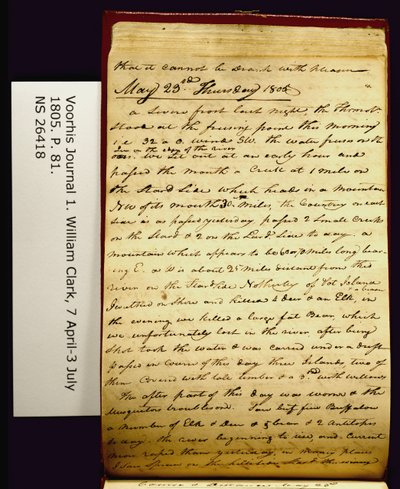 Voorhis Journal 1. William Clark, 7 April-3 July
1805. P. 81.
NS 26418
that it cannot be drank with
May 23rd Thursday 1805
a Severe frost last night, the Thermotr
Stood at the freeing point this morning
i.e 32 a 0. wind SW. the water freses on the
Ice on the edge of the river
We Set out at an early hour and
passed the mouth a Creek at 1 mile on
the Stard Side which heads in a mountain
N W of its mouth 30 miles, the Countrey on each
Side is as passed yesterday passed 2 Small Creeks
on the Stard & 2 on the Lard. Side to day. a
mountain which appears to be 60 or 70 miles long bear-
ing E. & W is about 25 miles distant from this
river on the Stard Side Notherly of Pot Island
I walked on Shore and killed 4 deer & an Elk, & a beaver in
the evening we killed a large fat Bear, which
we unfortunately lost in the river after being
Shot took the water & was Carried under a drift
passed in Course of this day three Islands, two of
them Covered with tall timber & a 3rd with willows
The after part of this day was worm & the
Musquitors troublesom. Saw but five Buffalow
a number of Elk & Deer & 5 bear & 2 Antilopes
to day. the river beginning to rise, and Current
more rapid than yesterday, in many places
I saw Spruces on the hills Sides Stard this evening